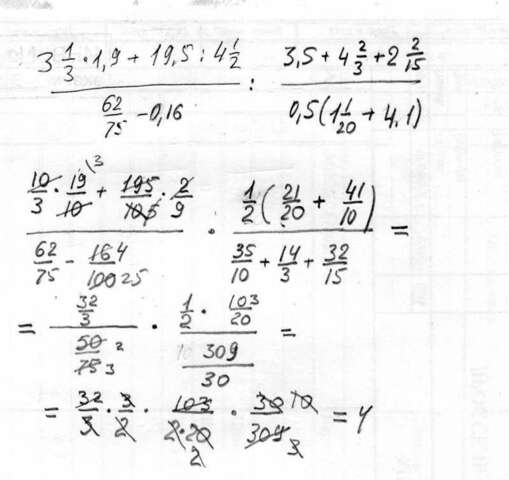 3 1/3 · 1,9 + 19,5 : 4 1/2 / 62/75 - 0,16 : 3,5 + 4 2/3 + 2 2/15 / 0,5 (1 1/20 + 4.1)
10/3 · 19/10 + 195/105 · 2/9 3 / 62/75 - 164/10025 · 1/2 (21/20 + 41/10) / 35/10 + 14/3 + 32/15 =
= 32/3 / 50/75 2 3 · 1/2 · 103/20 / 309/30 =
= 32/3 · 3/2 · 103/2·20 2 · 30/309 10 3 = 4